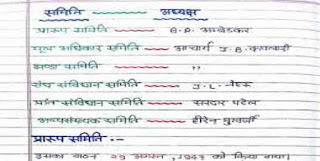 समिति अध्यक्ष
प्रारूप समिति B.R. अम्बेडकर
मूल अधिकार समिति आचार्य J.B. कृपलानी
झण्डा समिति ,,
संघ संविधान समिति J.L. नेहरू
प्रांत संविधान समिति सरदार पटेल
अल्पसंख्यक समिति हीरेन मुखर्जी
प्रारूप समिति :-
इसका गठन 29 अगस्त, 1947 को किया गया।